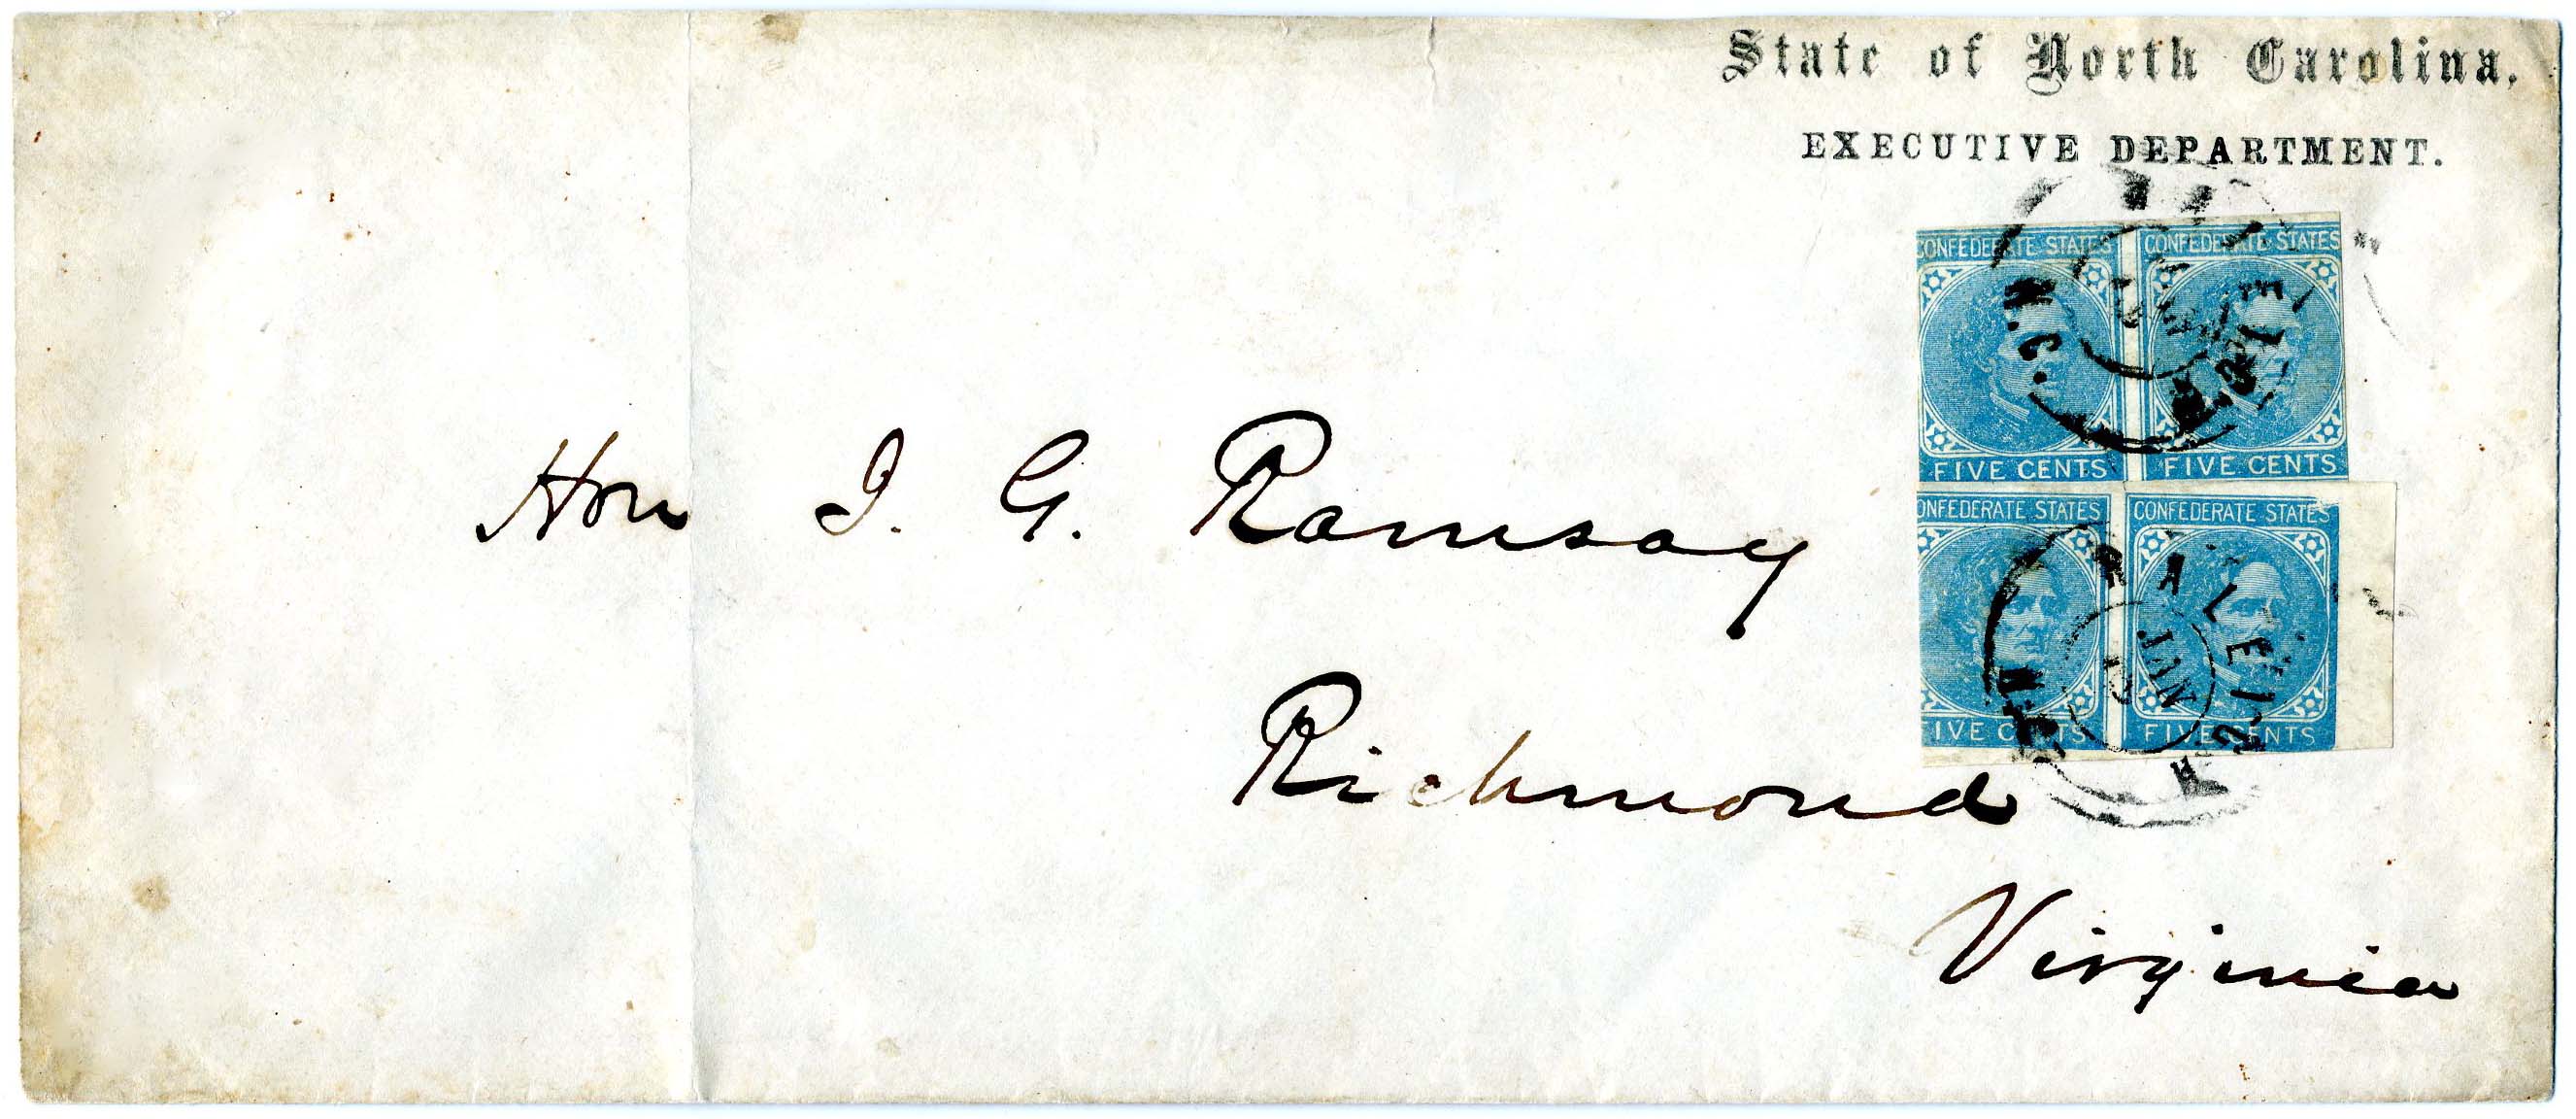 State of North Carolina,
EXECUTIVE DEPARTMENT.
CONFEDERATE STATES
CONFEDERATE STATES
N.C.
FIVE CENTS
FIVE CENTS
CONFEDERATE STATES
CONFEDERATE STATES
RALEIGH
JAN
N.C.
FIVE CENTS
FIVE CENTS
Hon J. G. Ramsay
Richmond
Virginia